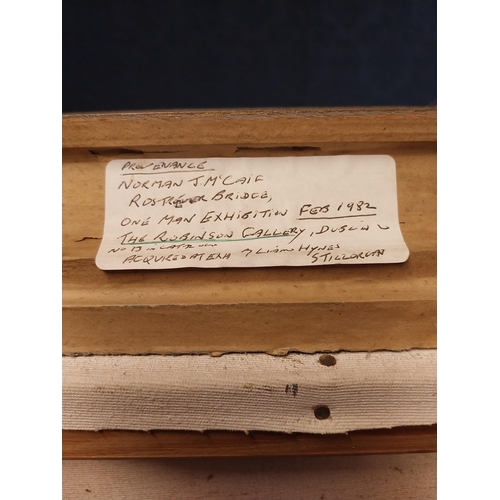 PROVENANCE
NORMAN J. McCAIG
ROSTREVER BRIDGE,
ONE MAN EXHIBITION FEB 1982
THE ROBINSON GALLERY, DUBLIN
NO 13 IN
ACQUIRED AT EXH LIAM HYNES
STILLORGAN